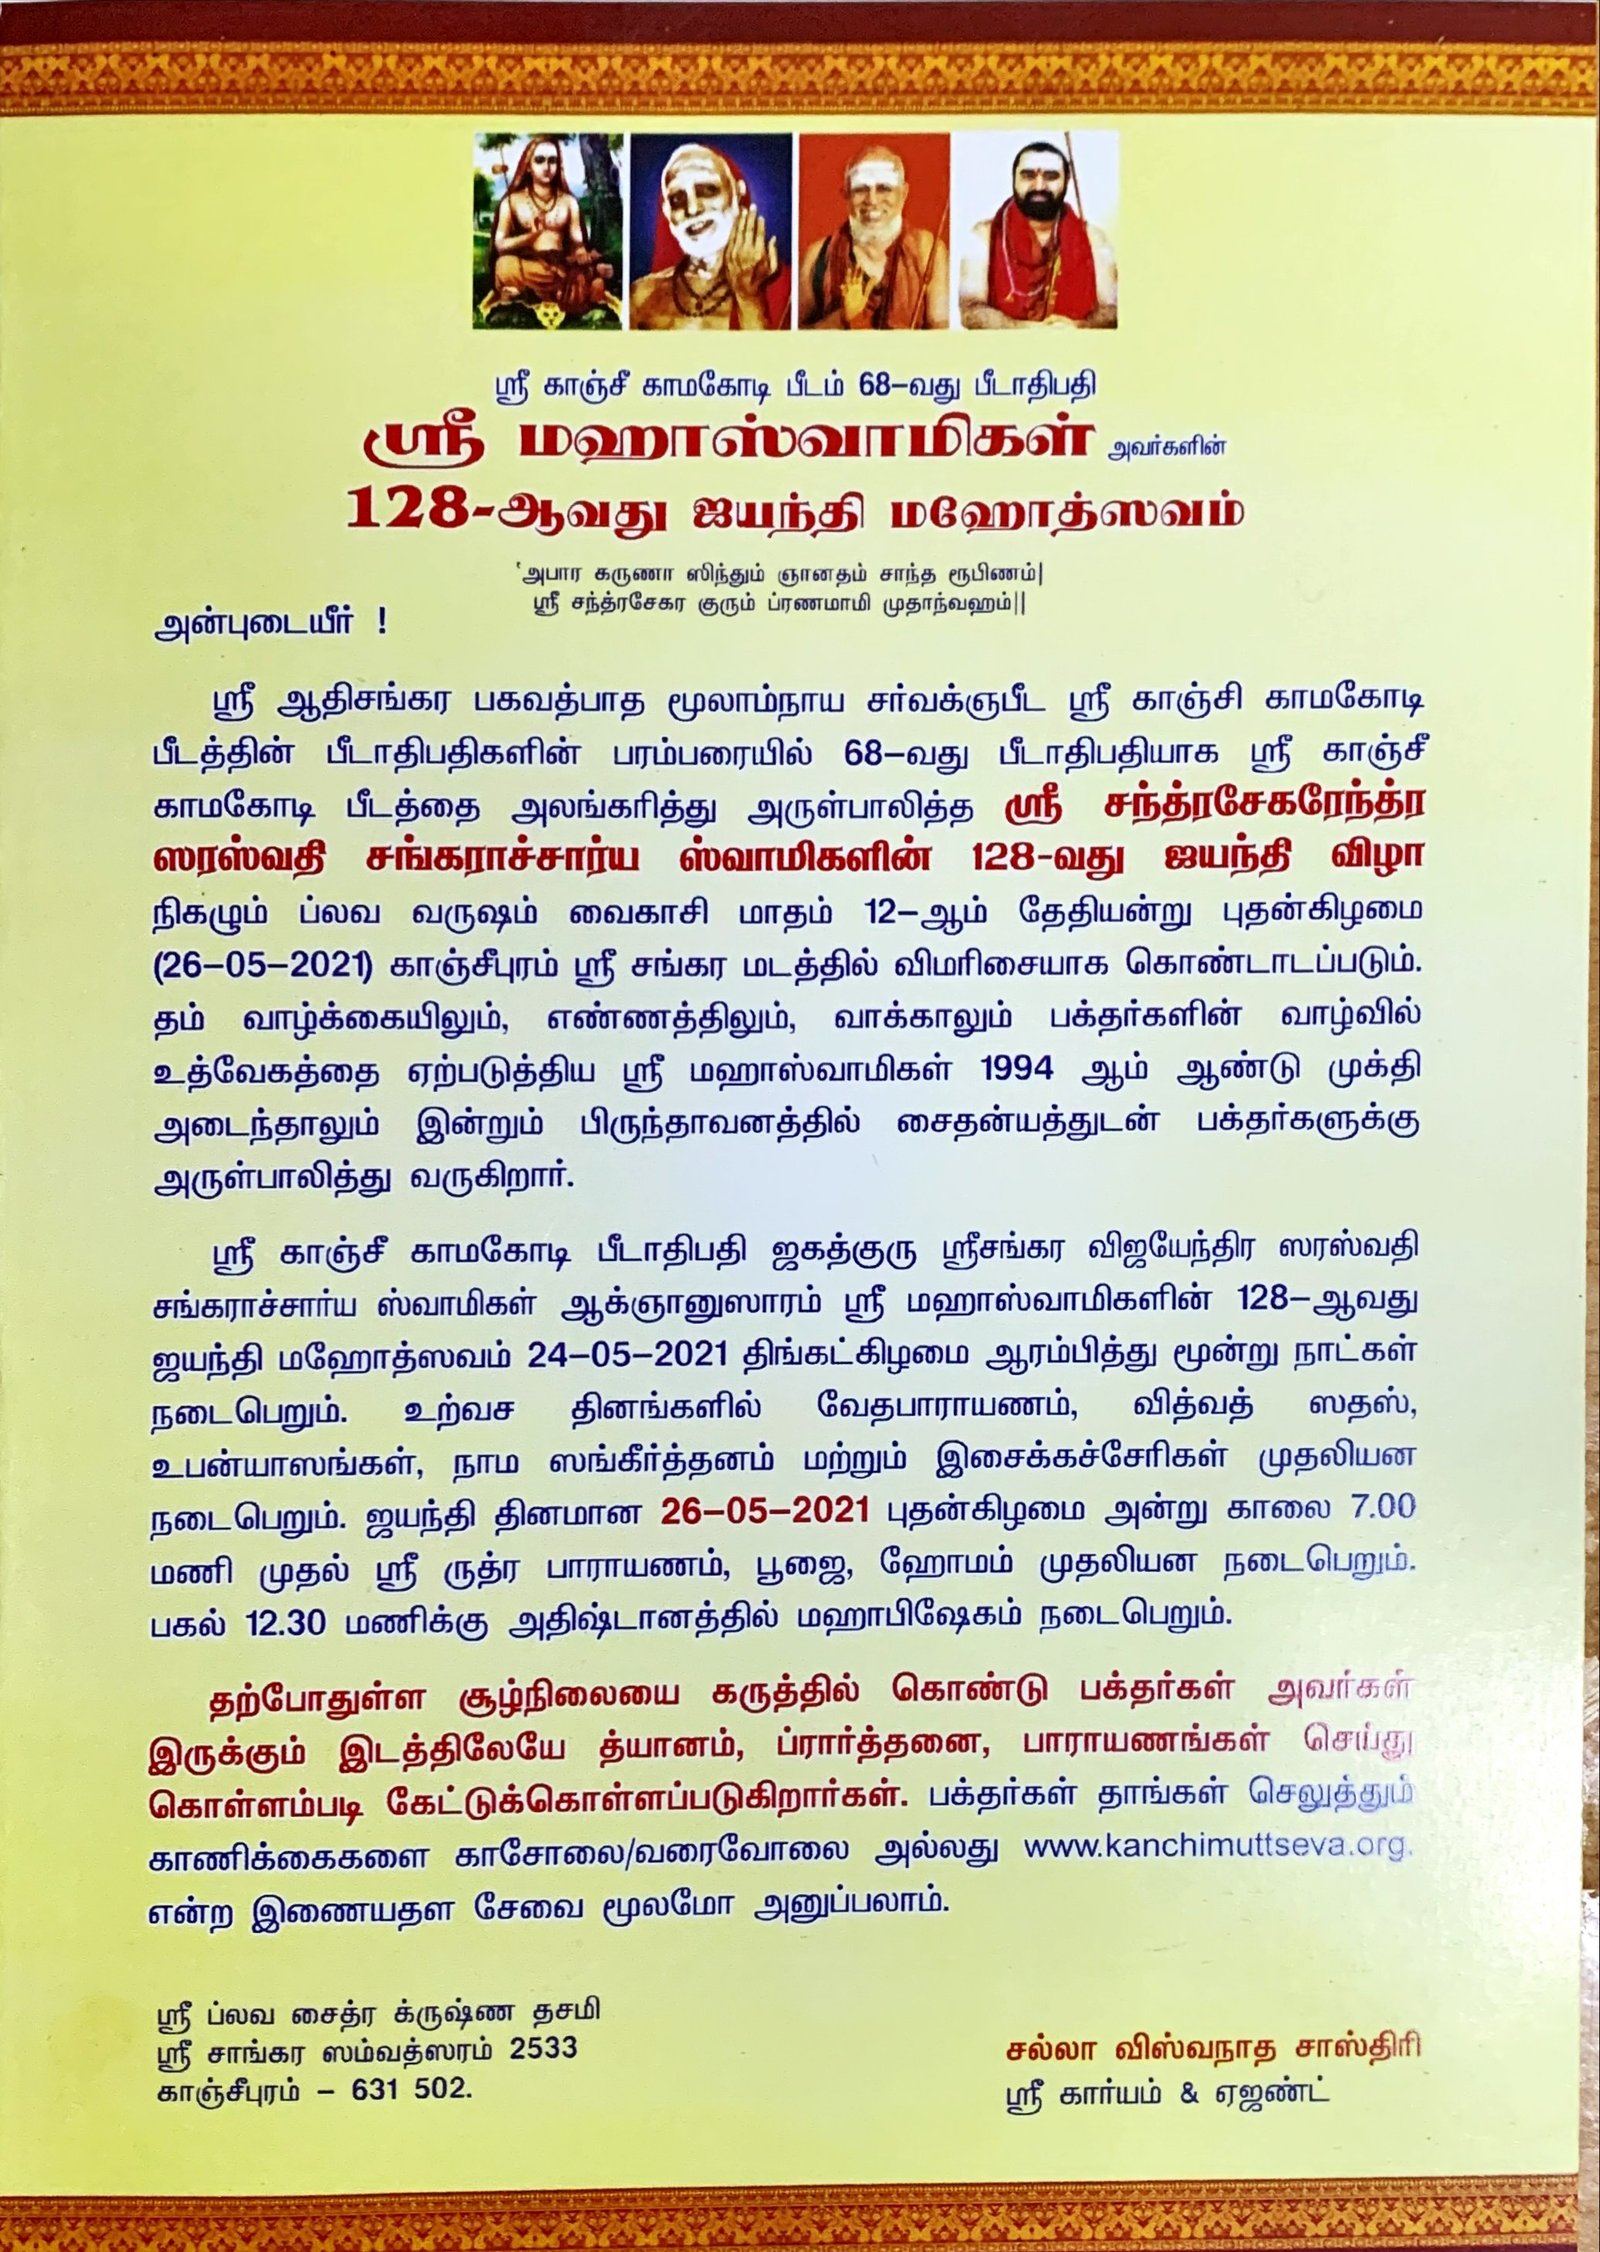 ஸ்ரீ காஞ்சீ காமகோடி பீடம் 68–வது பீடாதிபதி
ஸ்ரீ மஹாஸ்வாமிகள் அவர்களின்
128-ஆவது ஜயந்தி மஹோத்ஸவம்
‘அபார கருணா ஸிந்தும் ஞானதம் சாந்த ரூபிணம்|
ஸ்ரீ சந்த்ரசேகர குரும் ப்ரணமாமி முதாந்வஹம்||
அன்புடையீர் !
ஸ்ரீ ஆதிசங்கர பகவத்பாத மூலாம்நாய சர்வக்ஞபீட ஸ்ரீ காஞ்சி காமகோடி
பீடத்தின் பீடாதிபதிகளின் பரம்பரையில் 68–வது பீடாதிபதியாக ஸ்ரீ காஞ்சீ
காமகோடி பீடத்தை அலங்கரித்து அருள்பாலித்த ஸ்ரீ சந்த்ரசேகரேந்த்ர
ஸரஸ்வதி சங்கராச்சார்ய ஸ்வாமிகளின் 128-வது ஜயந்தி விழா
நிகழும் ப்லவ வருஷம் வைகாசி மாதம் 12–ஆம் தேதியன்று புதன்கிழமை
(26–05–2021) காஞ்சீபுரம் ஸ்ரீ சங்கர மடத்தில் விமரிசையாக கொண்டாடப்படும்.
தம் வாழ்க்கையிலும், எண்ணத்திலும், வாக்காலும் பக்தர்களின் வாழ்வில்
உத்வேகத்தை ஏற்படுத்திய ஸ்ரீ மஹாஸ்வாமிகள் 1994 ஆம் ஆண்டு முக்தி
அடைந்தாலும் இன்றும் பிருந்தாவனத்தில் சைதன்யத்துடன் பக்தர்களுக்கு
அருள்பாலித்து வருகிறார்.
ஸ்ரீ காஞ்சீ காமகோடி பீடாதிபதி ஜகத்குரு ஸ்ரீசங்கர விஜயேந்திர ஸரஸ்வதி
சங்கராச்சார்ய ஸ்வாமிகள் ஆக்ஞானுஸாரம் ஸ்ரீ மஹாஸ்வாமிகளின் 128–ஆவது
ஜயந்தி மஹோத்ஸவம் 24–05–2021 திங்கட்கிழமை ஆரம்பித்து மூன்று நாட்கள்
நடைபெறும். உற்வச தினங்களில் வேதபாராயணம், வித்வத் ஸதஸ்,
உபன்யாஸங்கள், நாம ஸங்கீர்த்தனம் மற்றும் இசைக்கச்சேரிகள் முதலியன
நடைபெறும். ஜயந்தி தினமான 26–05–2021 புதன்கிழமை அன்று காலை 7.00
மணி முதல் ஸ்ரீ ருத்ர பாராயணம், பூஜை, ஹோமம் முதலியன நடைபெறும்.
பகல் 12.30 மணிக்கு அதிஷ்டானத்தில் மஹாபிஷேகம் நடைபெறும்.
தற்போதுள்ள சூழ்நிலையை கருத்தில் கொண்டு பக்தர்கள் அவர்கள்
இருக்கும் இடத்திலேயே த்யானம், ப்ரார்த்தனை, பாராயணங்கள் செய்து
கொள்ளம்படி கேட்டுக்கொள்ளப்படுகிறார்கள். பக்தர்கள் தாங்கள் செலுத்தும்
காணிக்கைகளை காசோலை/வரைவோலை அல்லது www.kanchimuttseva.org.
என்ற இணையதள சேவை மூலமோ அனுப்பலாம்.
ஸ்ரீ ப்லவ சைத்ர க்ருஷ்ண தசமி
ஸ்ரீ சாங்கர ஸம்வத்ஸரம் 2533
காஞ்சீபுரம் – 631 502.
சல்லா விஸ்வநாத சாஸ்திரி
ஸ்ரீ கார்யம் & ஏஜண்ட்